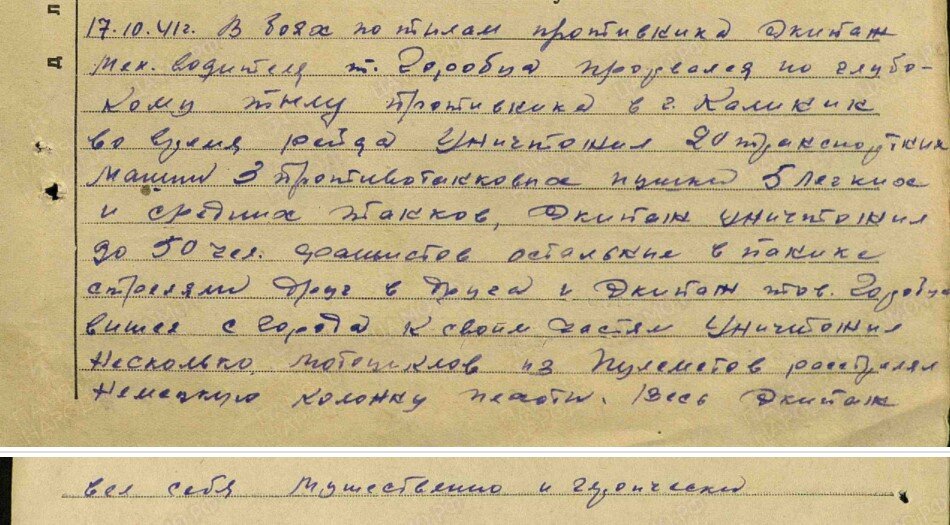 17.10.41г. В боях по тылам противника экипаж
мех. водителя т. Горобца прорвался по глубо-
кому тылу противника в г. Калинин
во время рейда уничтожил 20 транспортных
машин 3 противотанковых пушки 5 легких
и средних танков, экипаж уничтожил
до 50 чел. фашистов остальные в панике
стреляли друг в друга и экипаж тов. Горобца
вышел с города к своим частям уничтожил
несколько мотоциклов из пулеметов расстрелял
немецкую колонну пехоты. Весь экипаж
вел себя мужественно и героически